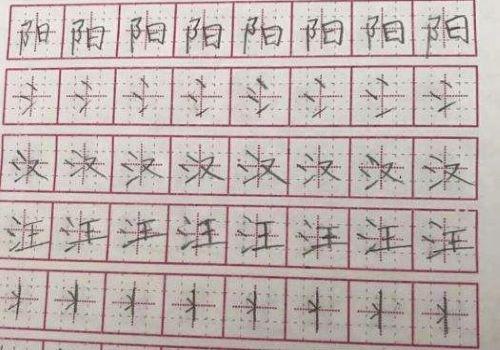 阳阳阳阳阳阳阳阳
氵氵氵氵氵氵氵氵
汉汉汉汉汉汉汉汉
汪汪汪汪汪汪汪汪
丬丬丬丬丬丬丬丬